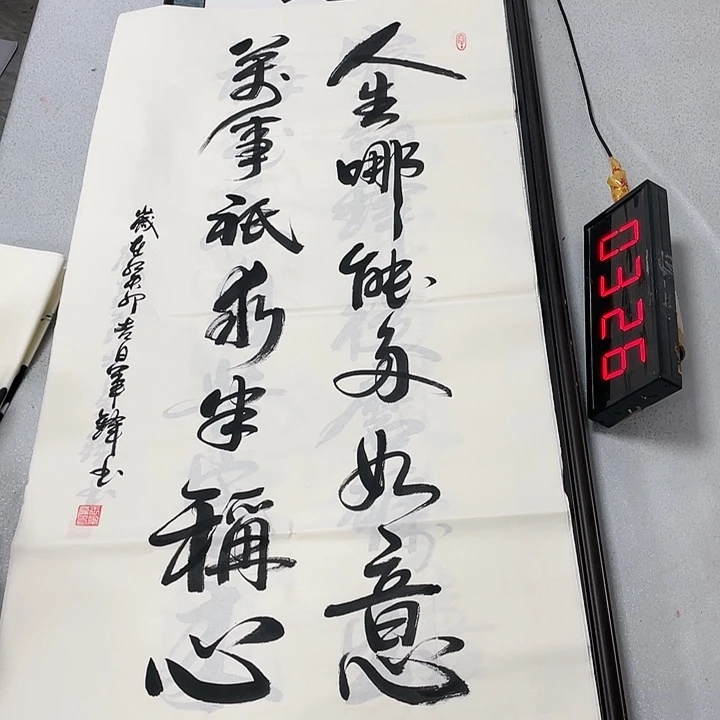 人生哪能多如意
萬事祇求半稱心
歲在癸卯吉日軍鋒书
0326